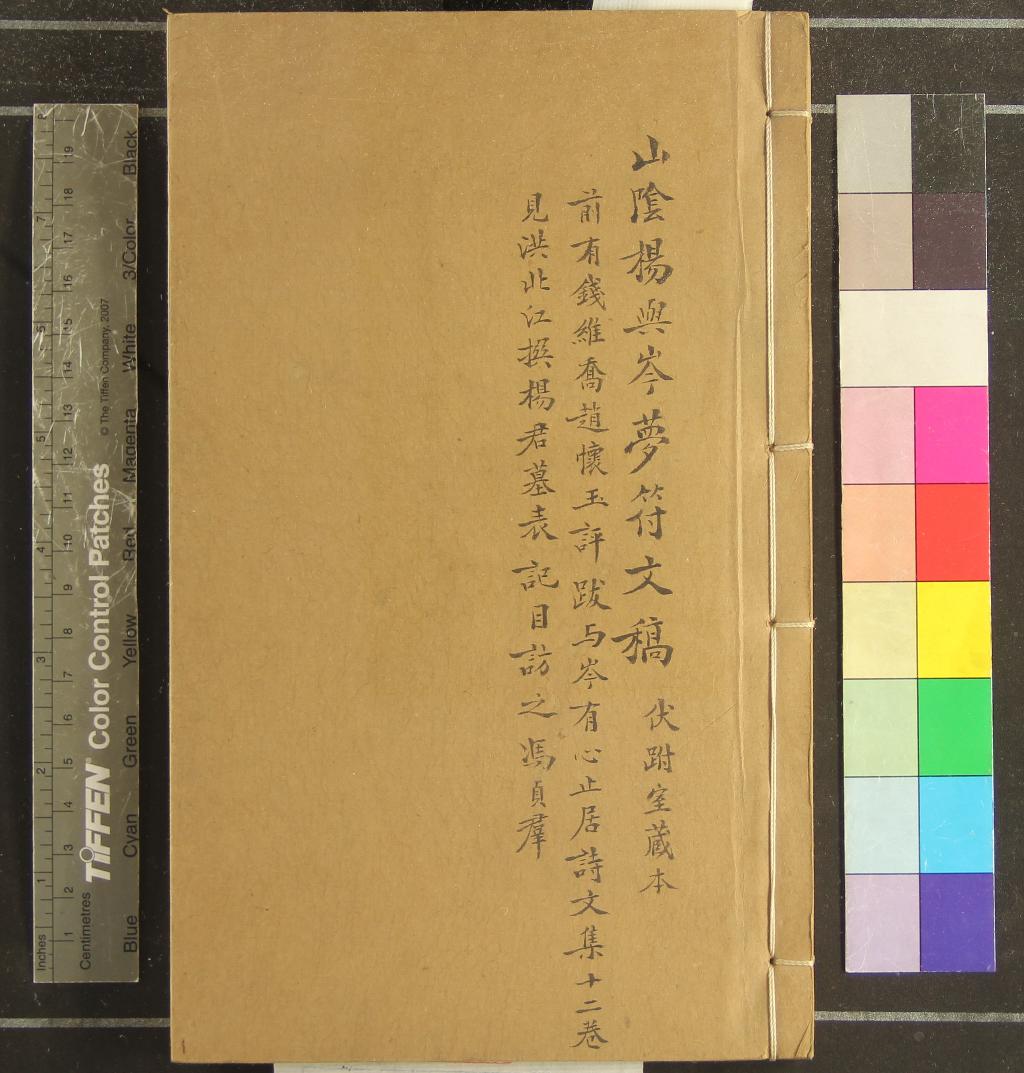 山陰楊與岑夢符文稿 伏跗室藏本
前有錢維喬趙懷玉評跋与岑有心止居詩文集十二卷
見洪北江撰楊君墓表記目訪之馮貞羣
Inches 1 2 3 4 5 6 7
Centimetres 1 2 3 4 5 6 7 8 9 10 11 12 13 14 15 16 17 18 19
TIFFEN Color Control Patches © The Tiffen Company, 2007
Blue Cyan Green Yellow Red Magenta White 3/Color Black